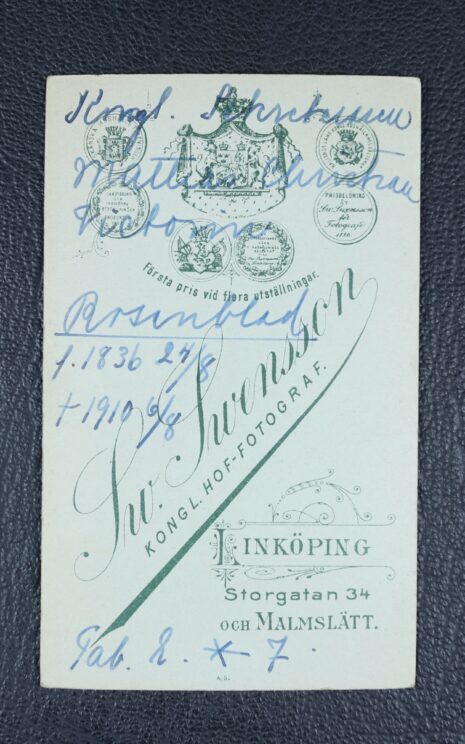 Kongl. Sekreteraren
Matthias Christian
Victorin
PRISBELÖNING
Sw. Swensson
för
Fotografi
1886
Första pris vid flera utställningar.
Rosenblad
f. 1836 24/8
† 1910 6/8
Sw. Swensson
KONGL. HOF-FOTOGRAF.
LINKÖPING
Storgatan 34
OCH MALMSLÄTT.
Tab. 2. * 7.
A.S.